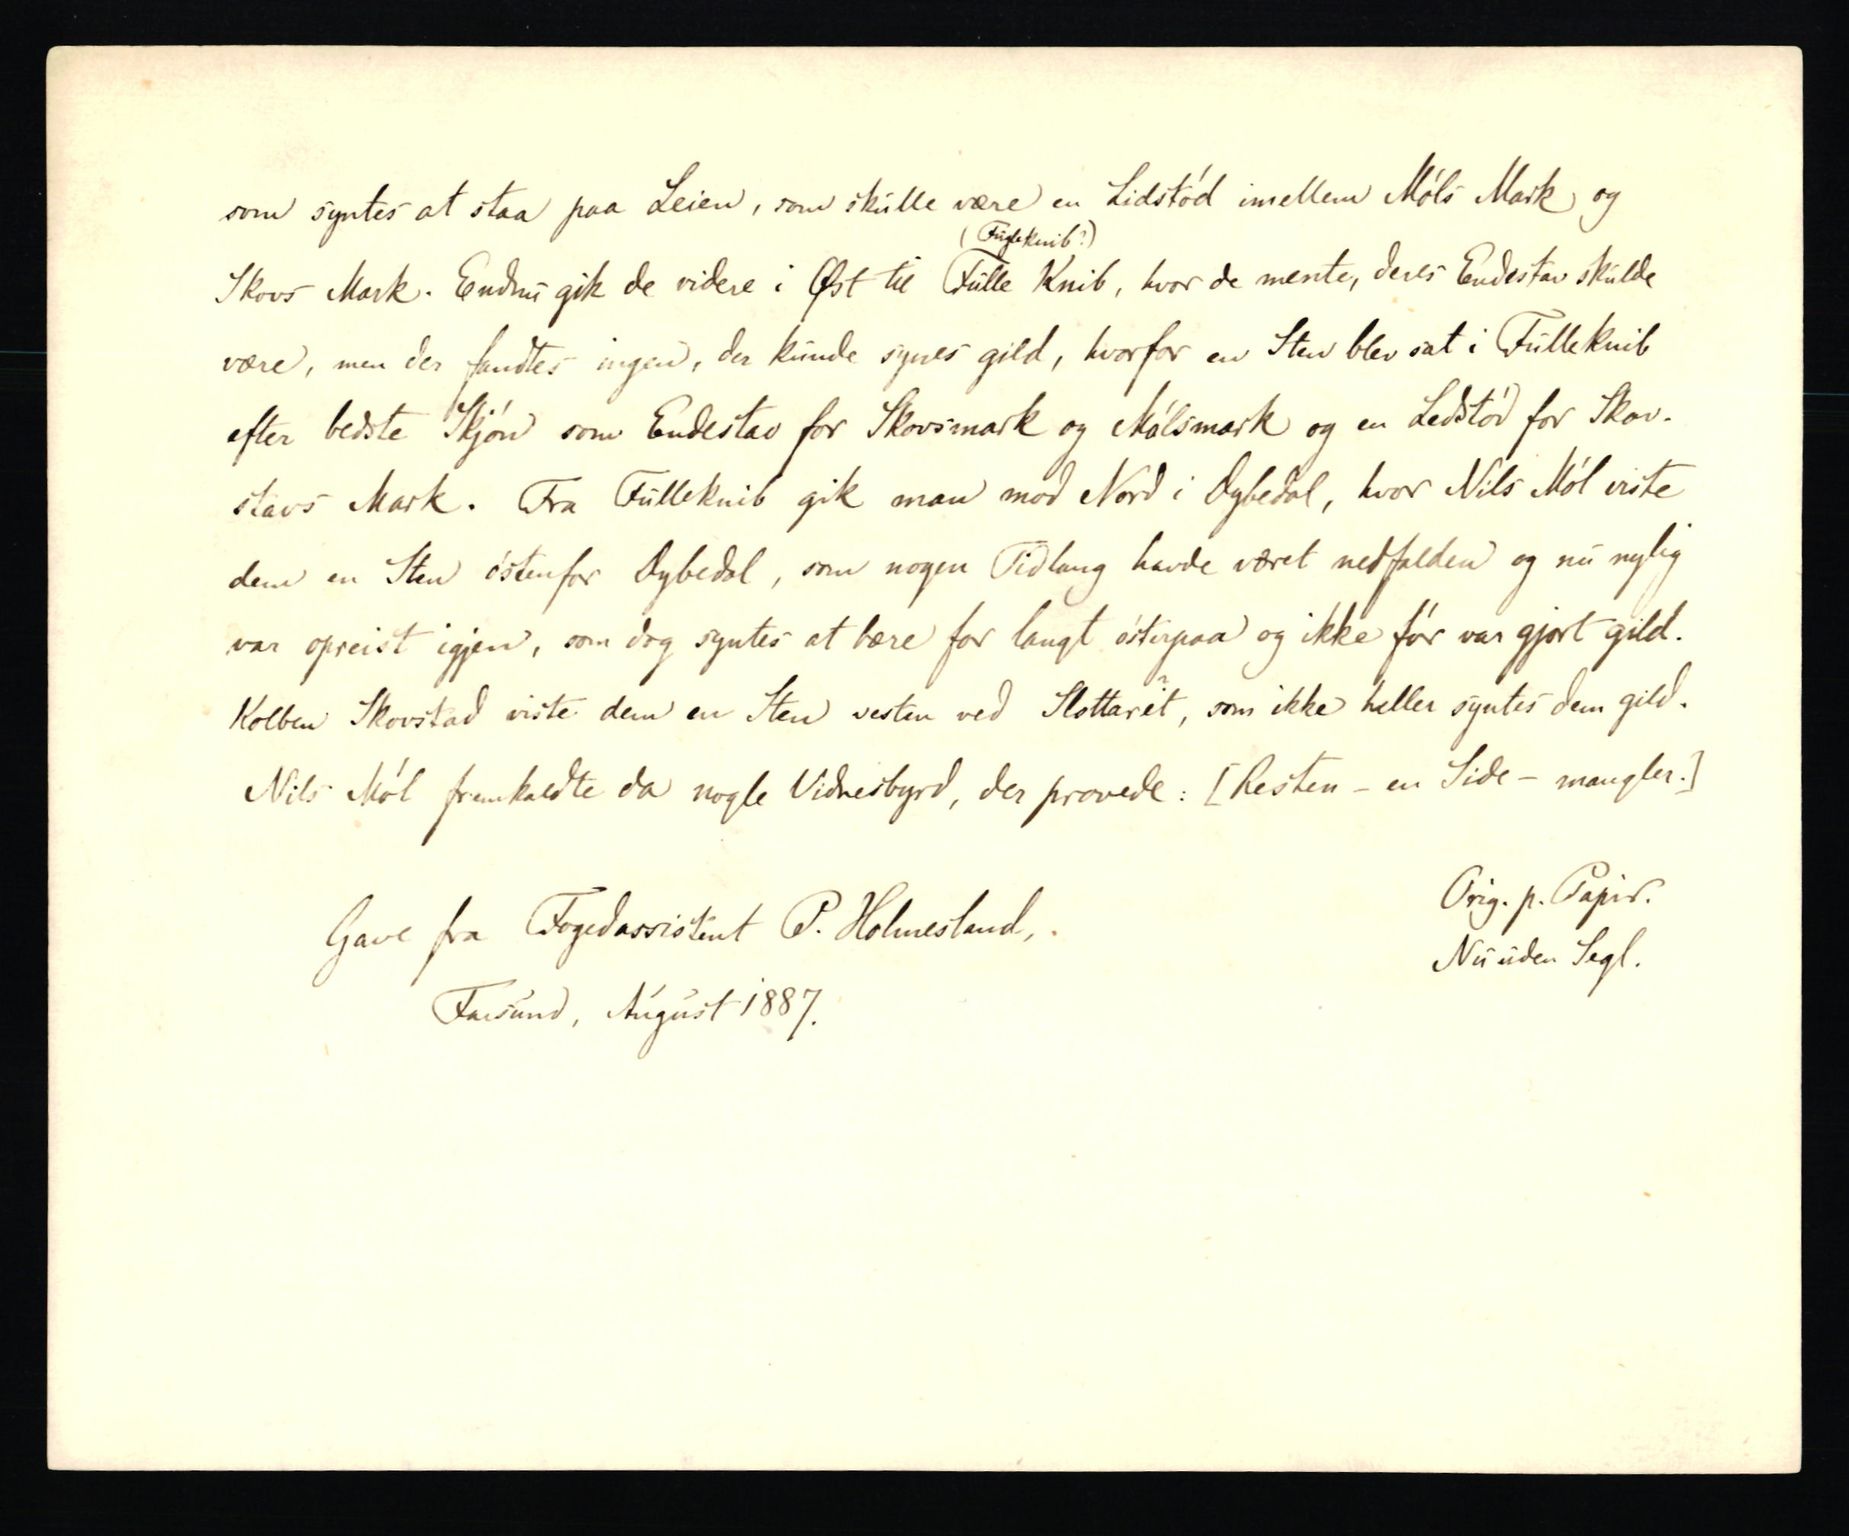 som syntes at staa paa Leien, som skulle være en Lidstód imellem Móls Mark og
(Fugleknib?)
Skovs Mark. Endnu gik de videre i Øst til Fulle Knib, hvor de mente, deres Endestav skulde
være, men der fandtes ingen, der kunde synes gild, hvorfor en Sten blev sat i Fulleknib
efter bedste Skjón som Endestav for Skovsmark og Mólsmark og en Ledstód for Skov-
stavs Mark. Fra Fulleknib gik man mod Nord i Dybedal, hvor Nils Mól viste
dem en Sten óstenfor Dybedal, som nogen Tidlang havde været nedfalden og nu nylig
var opreist igjen, som dog syntes at bære for langt ósterpaa og ikke fór var gjort gild.
Kolben Skovstad viste dem en Sten vesten ved Slottarét, som ikke heller syntes dem gild.
Nils Mól fremkaldte da nogle Vidnesbyrd, der provede: [Resten – en Side – mangler.]
Orig. p. Papir.
Gave fra Fogedassistent P. Holmesland,.
Nu uden Segl.
Farsund, August 1887.